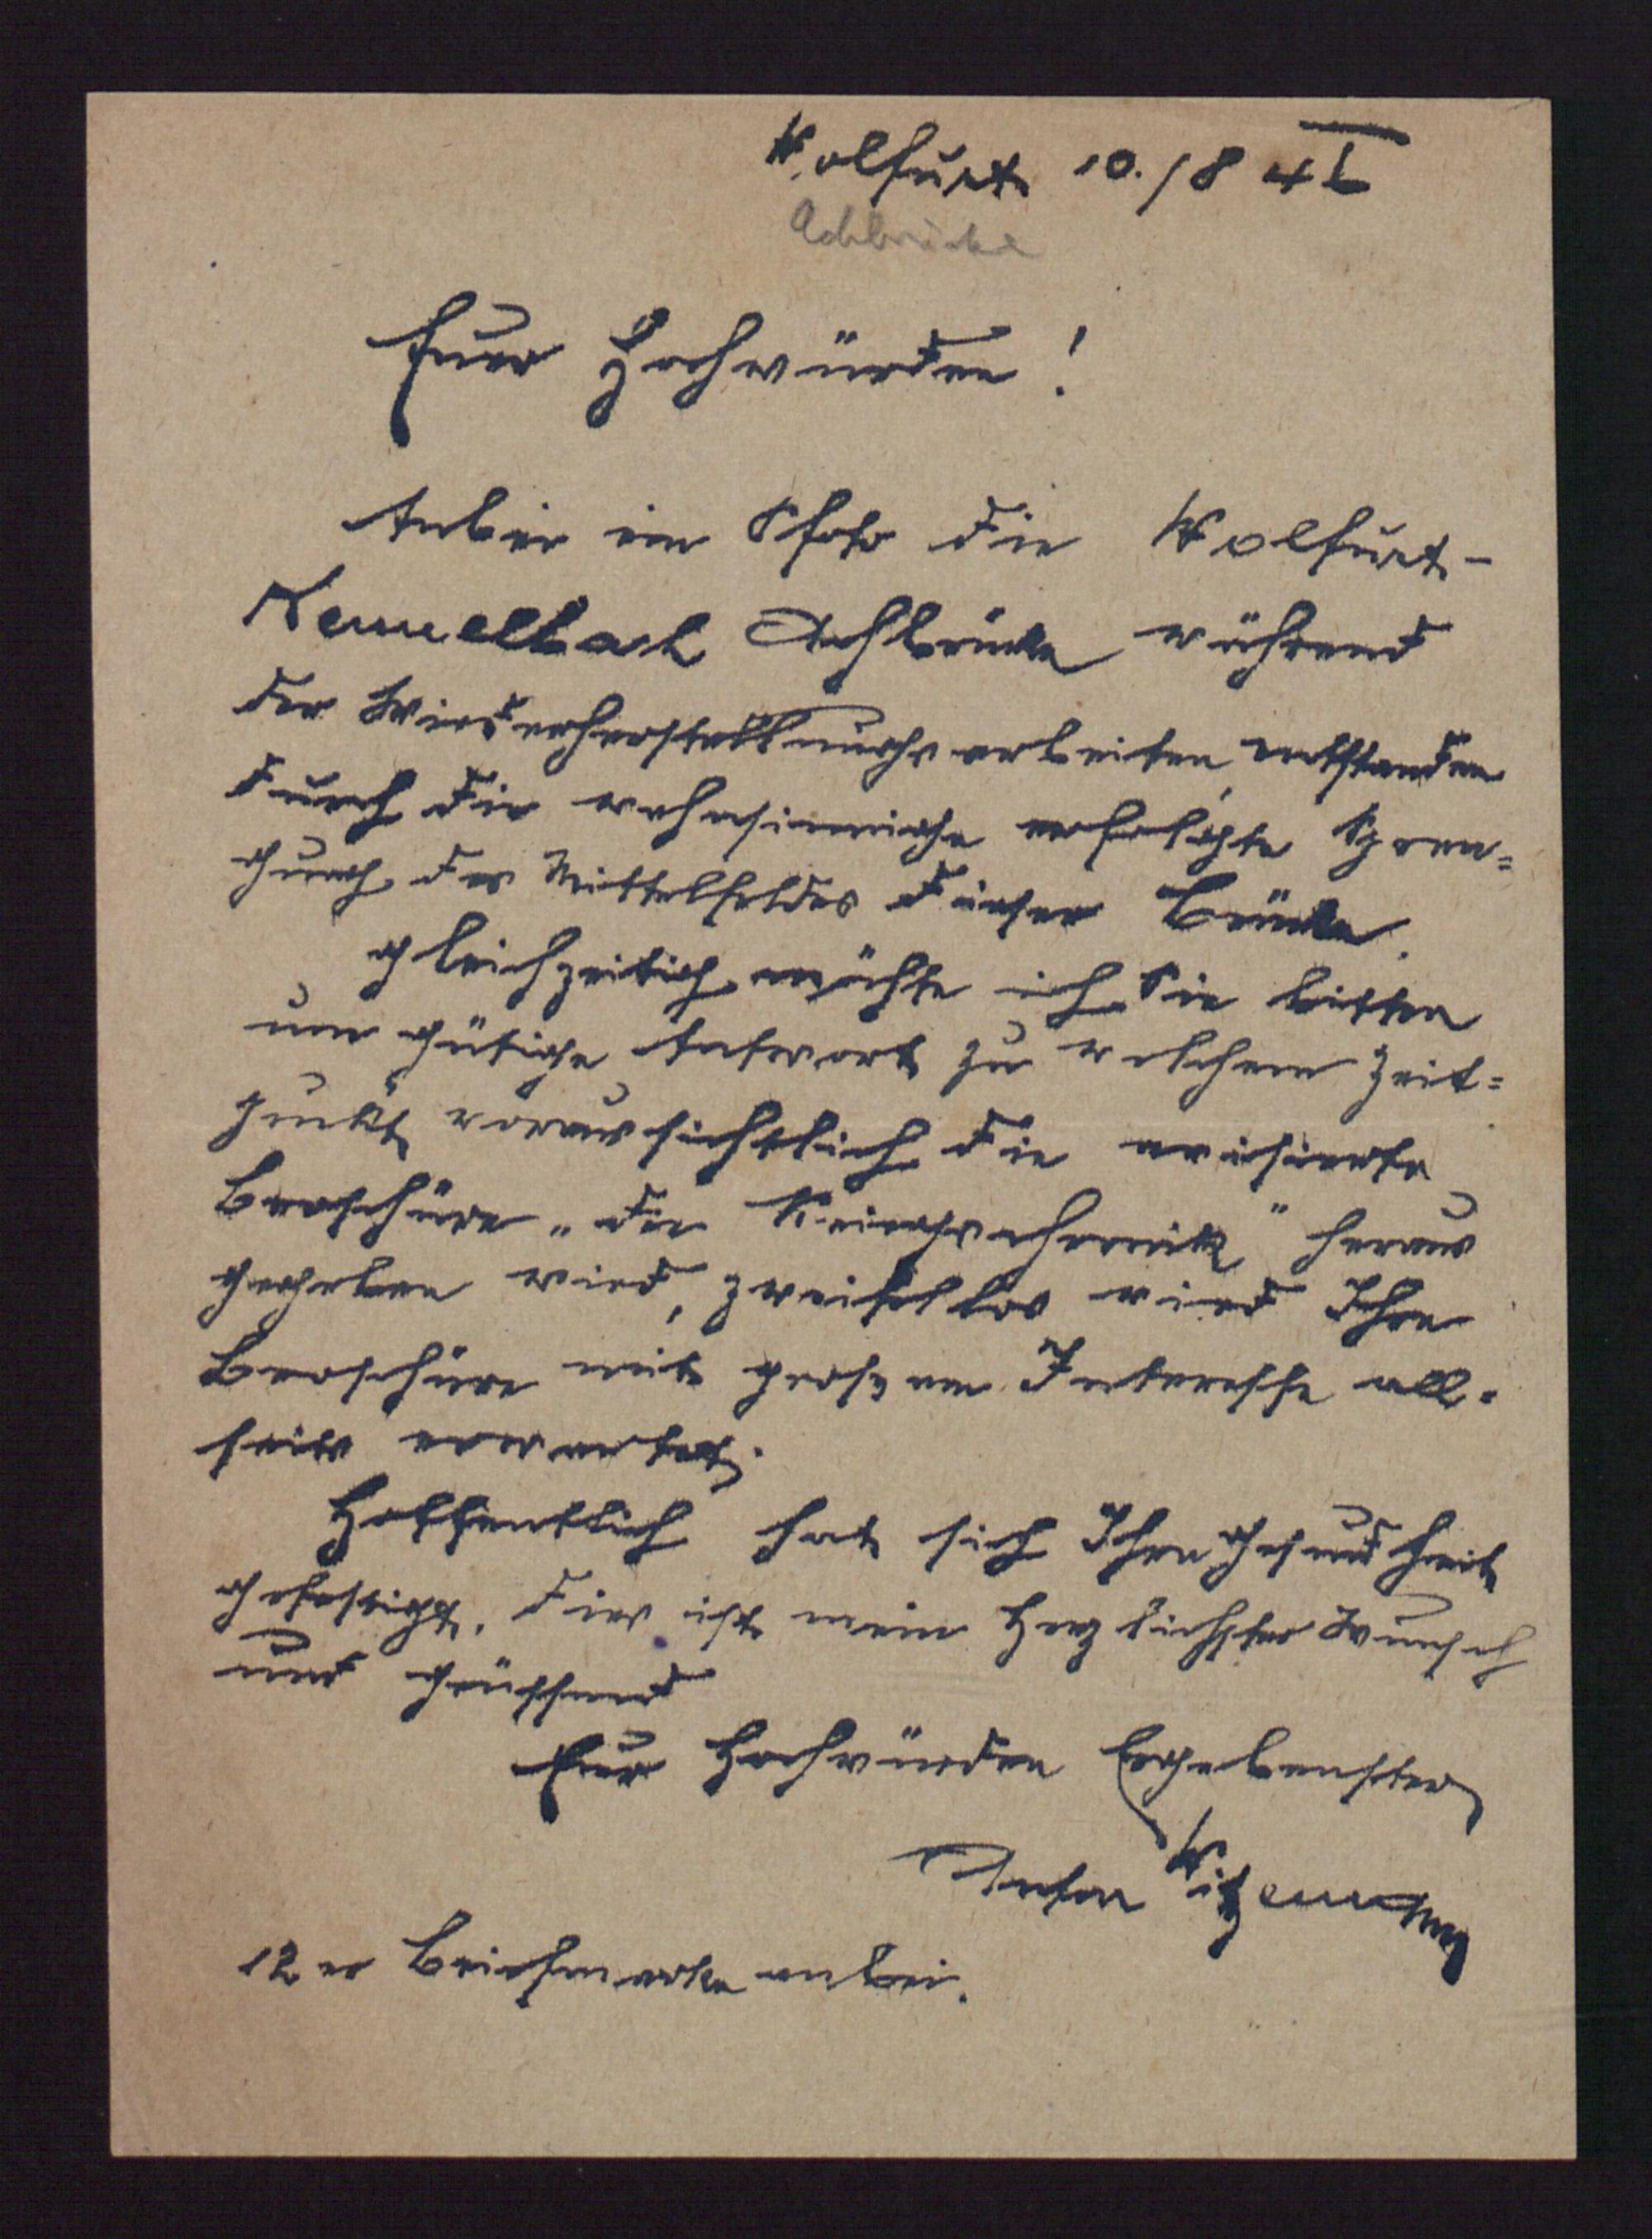 Wolfurt 10./8 46
Achbrücke
Euer Hochwürden!
Anbei im Photo die Wolfurt-
Kennelbach Achbrücke während
der Wiederherstellungsarbeiten, entstanden
durch die wahnsinnige erfolgte Spren=
gung des Mittelfeldes dieser Brücke.
Gleichzeitig möchte ich Sie bitten
um gütige Antwort zu welchem Zeit=
punkt voraussichtlich die avisierte
Broschüre „die Kriegschronik" heraus
gegeben wird, zweifellos wird Ihre
Broschüre mit großem Interesse all=
seits erwartet.
Hoffentlich hat sich Ihre Gesundheit
gefestigt. Dies ist mein herzlichster Wunsch
und grüssend
Euer Hochwürden Ergebenster
Anton
12er Briefmarke anbei.